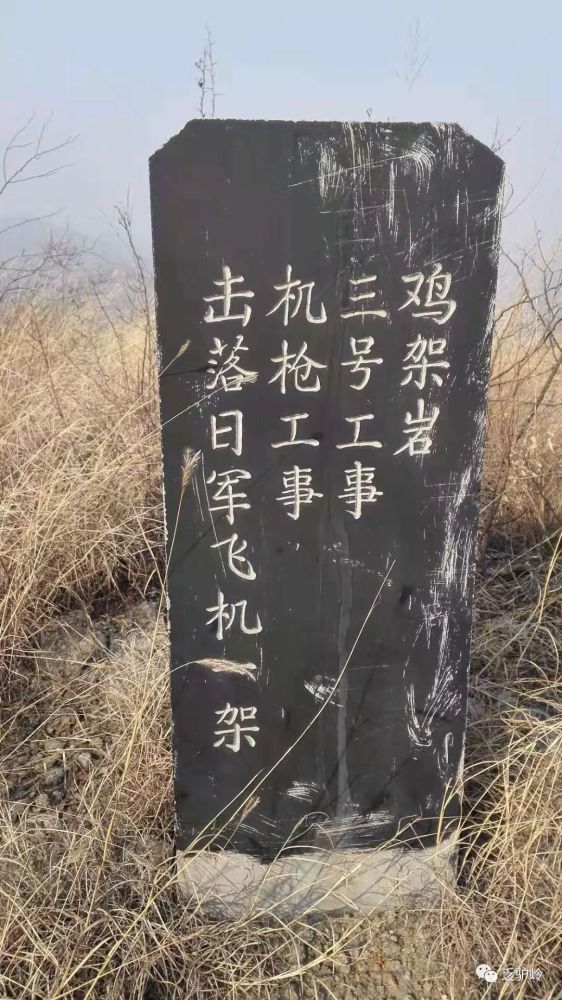 鸡架岩
三号工事
机枪工事
击落日军飞机一架
乏驴岭